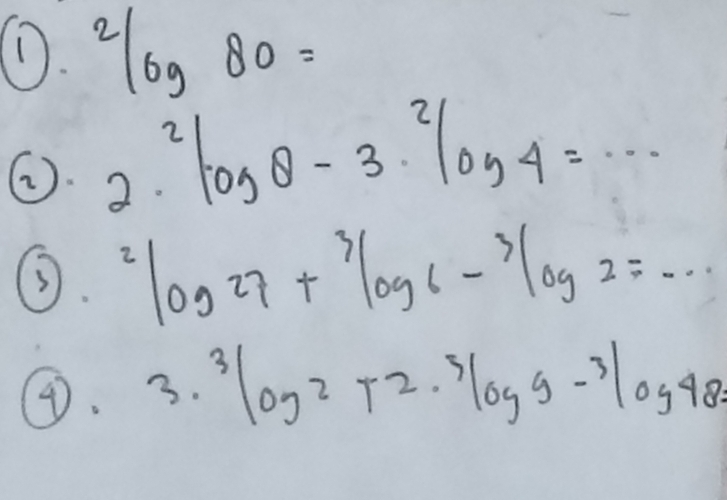 ①. ²log 80 =
②. 2 . ²log 8 - 3 . ²log 4 = ...
③. ²log 27 + ³log 6 - ³log 2 = ...
④. 3 . ³log 2 + 2 . ³log 9 - ³log 48 =